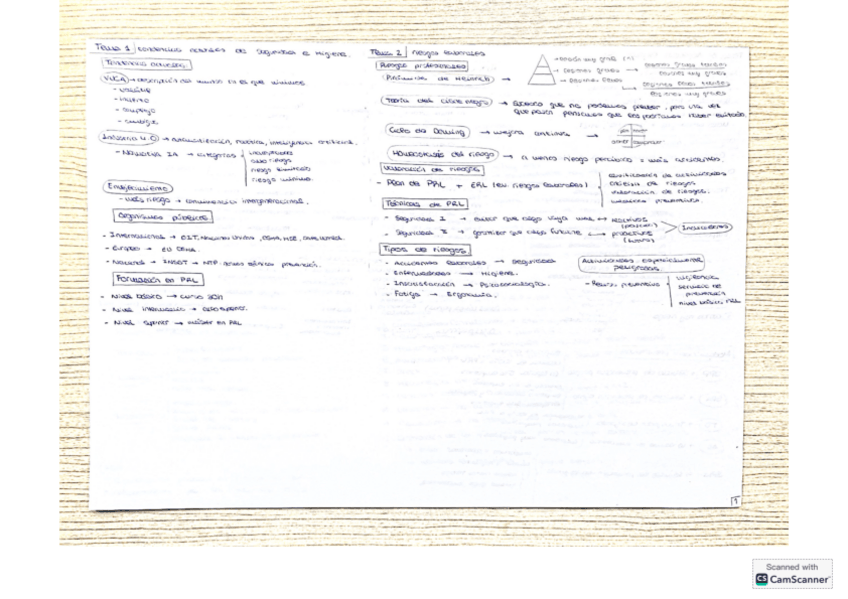 Tema 1 tendencias actuales de seguridad e higiene.
Tendencias actuales.
VUCA → descripción del mundo en el que vivimos
- volátil
- incierto
- complejo
- ambiguo
Industria 4.0 → automatización, robótica, inteligencia artificial.
- Normativa IA → categorías
inaceptables
alto riesgo
riesgo limitado
riesgo mínimo.
Envejecimiento
- más riesgo → comunicación intergeneracional.
Organismos públicos
- Internacional → OIT, Naciones Unidas, OSHA, HSE,
- Europeo → EU OSHA.
- Nacional → INSST → NTP. notas técnicas prevención.
Formación en PRL
- Nivel básico → curso 30h
- Nivel intermedio → ciclo superior.
- Nivel superior → máster en PRL
Tema 2 riesgos laborales
Riesgos profesionales
Pirámide de Heinrich →
→ lesión muy grave (1)
→ lesiones graves →
→ lesiones leves →
lesiones muy graves
Teoría del cisne negro → suceso que no podíamos prever, pero una vez
que pasa pensamos que sí podríamos haber evitado.
Ciclo de Deming → mejora continua →
Homeostasis del riesgo → a menos riesgo percibido = más accidentes.
Valoración de riesgos
- Plan de PRL + ERL (ev. riesgos laborales)
planificación de riesgos
valoración de riesgos.
medidas preventivas.
Técnicas de PRL
- Seguridad I → evitar que algo vaya mal → reactivas
(pasivas)
- Seguridad II → garantizar que algo funcione → proactivas
Indicadores
Tipos de riesgos
- Accidentes laborales → Seguridad
- Enfermedades → Higiene.
- Insatisfacción → Psicosociología.
- Fatiga → Ergonomía.
Actividades especialmente
peligrosas
- Recurso preventivo
vigilancia
servicio de
prevención
nivel básico PRL
1
Scanned with
CS CamScanner